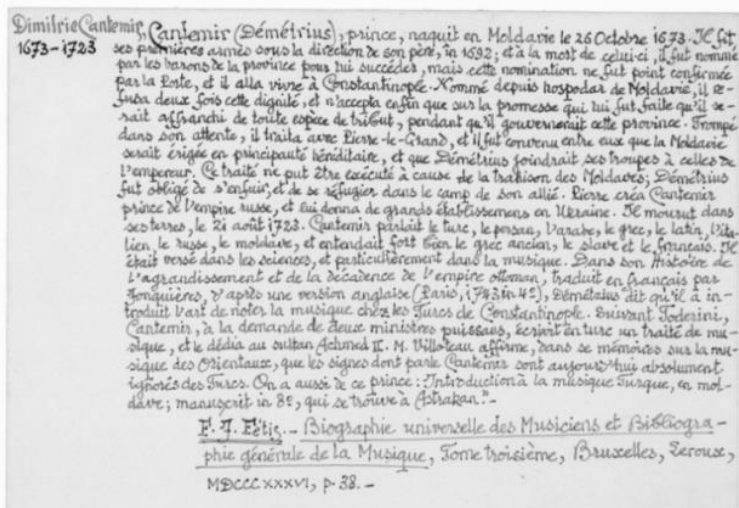 Dimitrie Cantemir
1673-1723
„Cantemir (Démétrius), prince, naquit en Moldavie le 26 Octobre 1673. Il fit
ses premières armes sous la direction de son père, in 1692; et à la mort de celui-ci, il fut nommé
par les barons de la province pour lui succéder, mais cette nomination ne fut point confirmée
par la Porte, et il alla vivre à Constantinople. Nommé depuis hospodar de Moldavie, il re-
fusa deux fois cette dignité, et n'accepta enfin que sur la promesse qui lui fut faite qu'il se-
rait affranchi de toute espèce de tribut, pendant qu'il gouvernerait cette province. Trompé
dans son attente, il traita avec Pierre-le-Grand, et il fut convenu entre eux que la Moldavie
serait érigée en principauté héréditaire, et que Démétrius joindrait ses troupes à celles de
l'empereur. Ce traité ne put être exécuté à cause de la trahison des Moldaves; Démétrius
fut obligé de s'enfuir, et de se réfugier dans le camp de son allié. Pierre créa Cantemir
prince de l'empire russe, et lui donna de grands établissemens en Ukraine. Il mourut dans
ses terres, le 21 août 1723. Cantemir parlait le turc, le persan, l'arabe, le grec, le latin, l'ita-
lien, le russe, le moldave, et entendait fort bien le grec ancien, le slave et le français. Il
était versé dans les sciences, et particulièrement dans la musique. Dans son Histoire de
l'agrandissement et de la décadence de l'empire ottoman, traduit en français par
Jonquières, d'après une version anglaise (Paris, 1743 in 4º), Démétrius dit qu'il a in-
troduit l'art de noter la musique chez les Turcs de Constantinople. Suivant Toderini,
Cantemir, à la demande de deux ministres puissans, écrivit en turc un traité de mu-
sique, et le dédia au sultan Achmed II. M. Villoteau affirme, dans se mémoires sur la mu-
sique des Orientaux, que les signes dont parle Cantemir sont aujourd'hui absolument
ignorés des Turcs. On a aussi de ce prince: Introduction à la musique Turque, en mol-
dave; manuscrit in 8º, qui se trouve à Astrakan." -
F. J. Fétis. - Biographie universelle des Musiciens et Bibliogra-
phie générale de la Musique, Tome troisième, Bruxelles, Leroux,
MDCCCXXXVI, p. 38. -